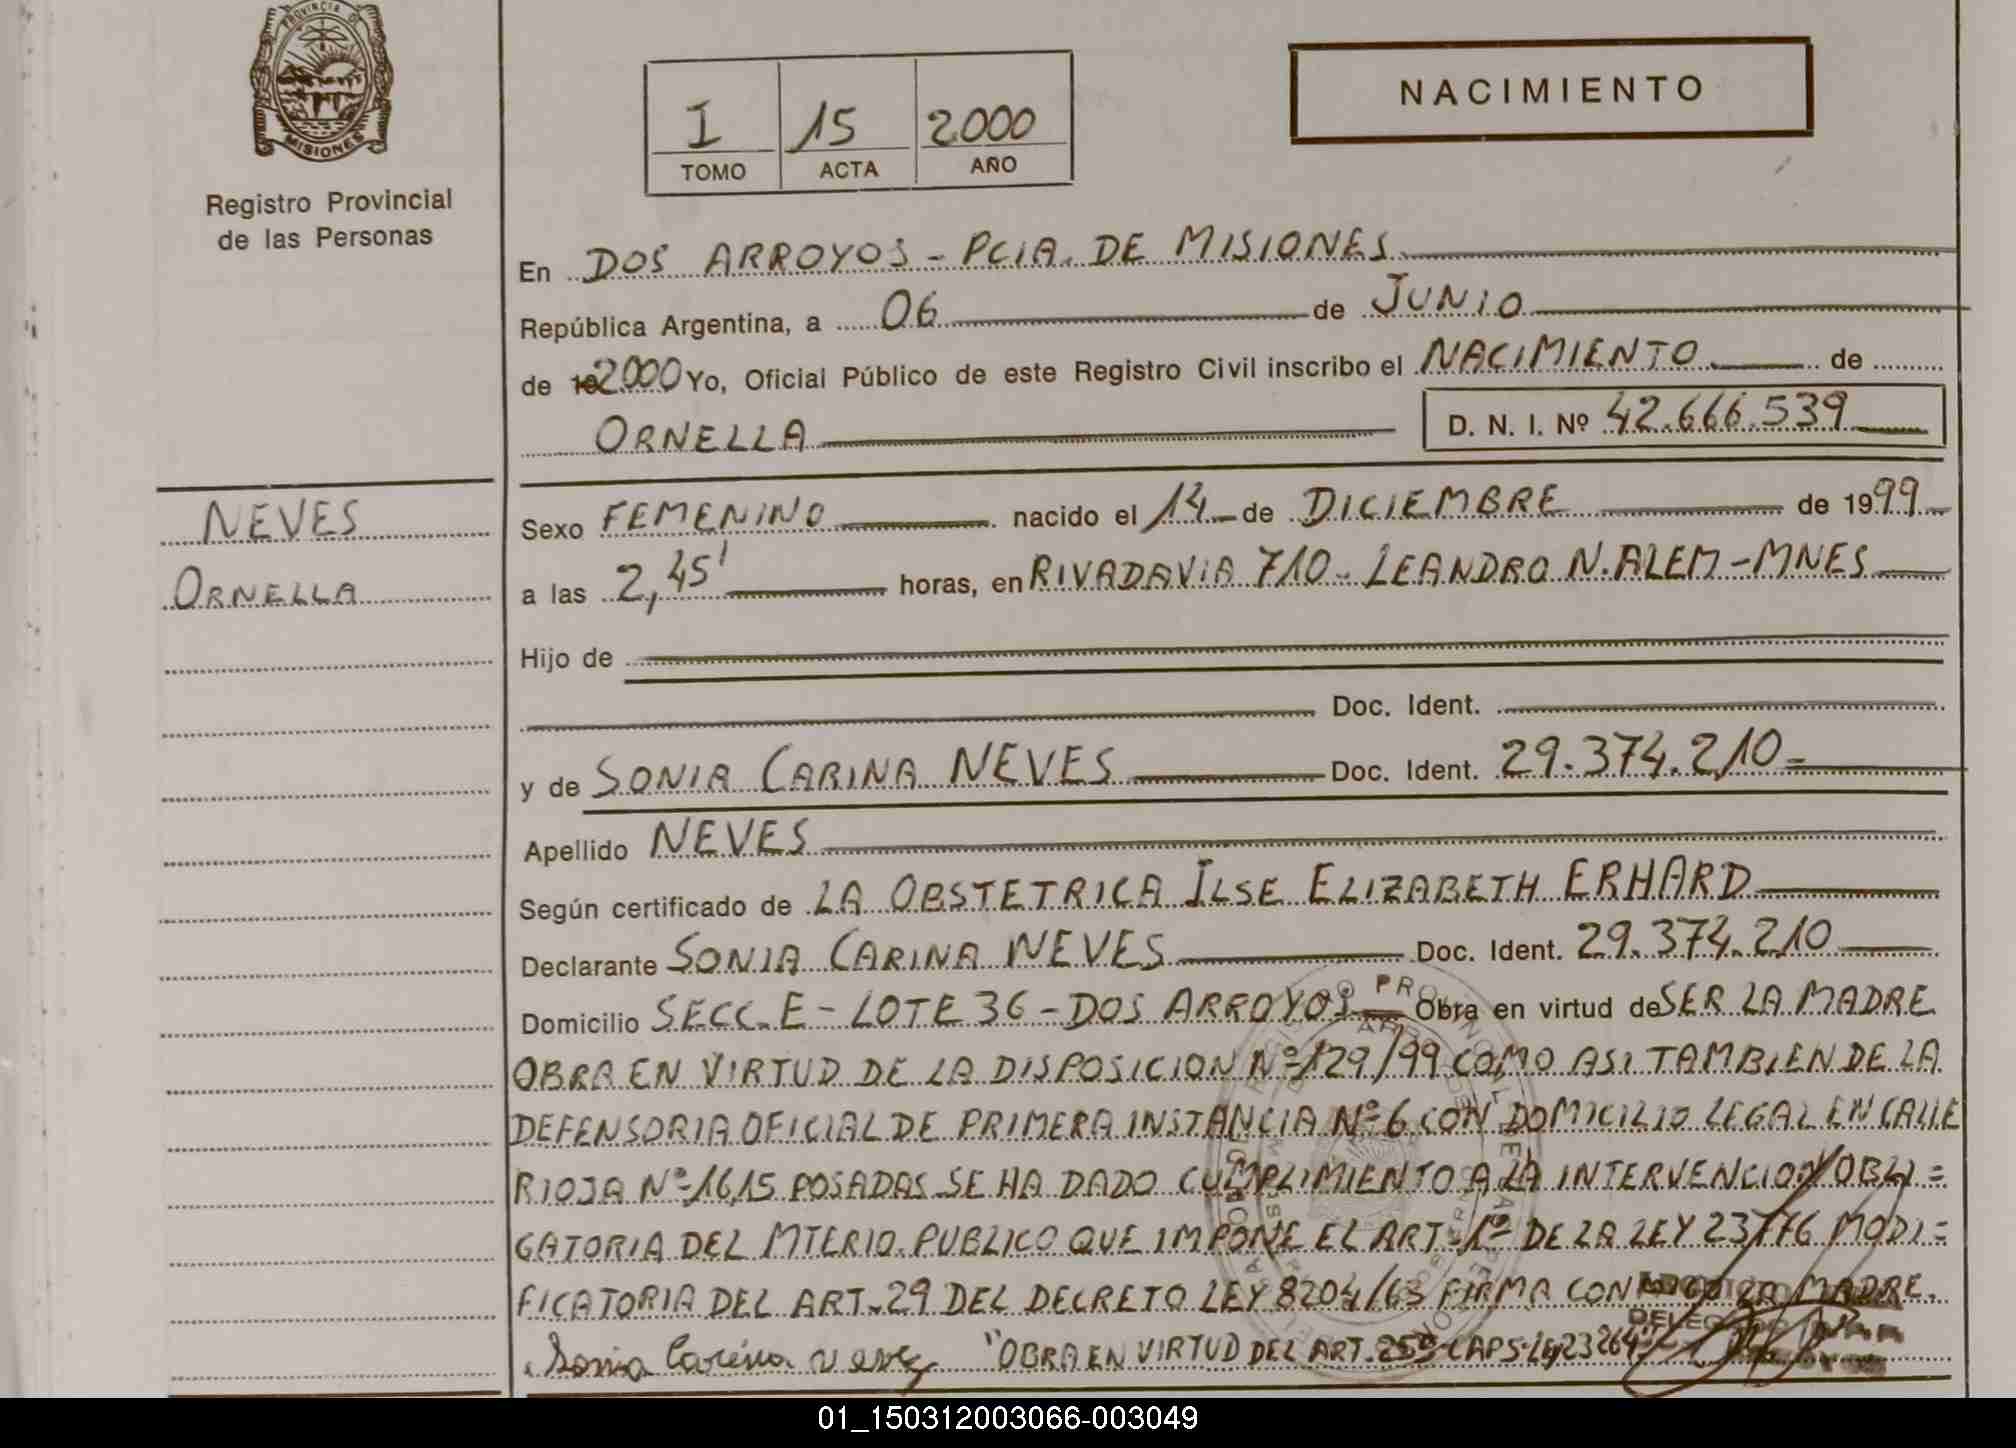 PROVINCIA DE
MISIONES
Registro Provincial
de las Personas
I 15 2000
TOMO ACTA AÑO
NACIMIENTO
En DOS ARROYOS - PCIA. DE MISIONES
República Argentina, a 06 de JUNIO
de 2000 Yo, Oficial Público de este Registro Civil inscribo el NACIMIENTO de
ORNELLA D. N. I. Nº 42.666.539
NEVES
ORNELLA
Sexo FEMENINO nacido el 14 de DICIEMBRE de 1999
a las 2,45' horas, en RIVADAVIA 710 - LEANDRO N. ALEM - MNES
Hijo de
Doc. Ident.
y de SONIA CARINA NEVES Doc. Ident. 29.374.210=
Apellido NEVES
Según certificado de LA OBSTETRICA ILSE ELIZABETH ERHARD
Declarante SONIA CARINA NEVES Doc. Ident. 29.374.210
Domicilio SECC. E - LOTE 36 - DOS ARROYOS Obra en virtud de SER LA MADRE
OBRA EN VIRTUD DE LA DISPOSICION Nº 129/99 COMO ASI TAMBIEN DE LA
DEFENSORIA OFICIAL DE PRIMERA INSTANCIA Nº 6 CON DOMICILIO LEGAL EN CALLE
RIOJA Nº 1615 POSADAS SE HA DADO CUMPLIMIENTO A LA INTERVENCION OBLI=
GATORIA DEL MTERIO PUBLICO QUE IMPONE EL ART. 1º DE LA LEY 23776 MODI=
FICATORIA DEL ART. 29 DEL DECRETO LEY 8204/63 FIRMA CONMIGO LA MADRE.
Sonia Carina Neves "OBRA EN VIRTUD DEL ART. 25º CAP 5 Ley 23264"
01_150312003066-003049